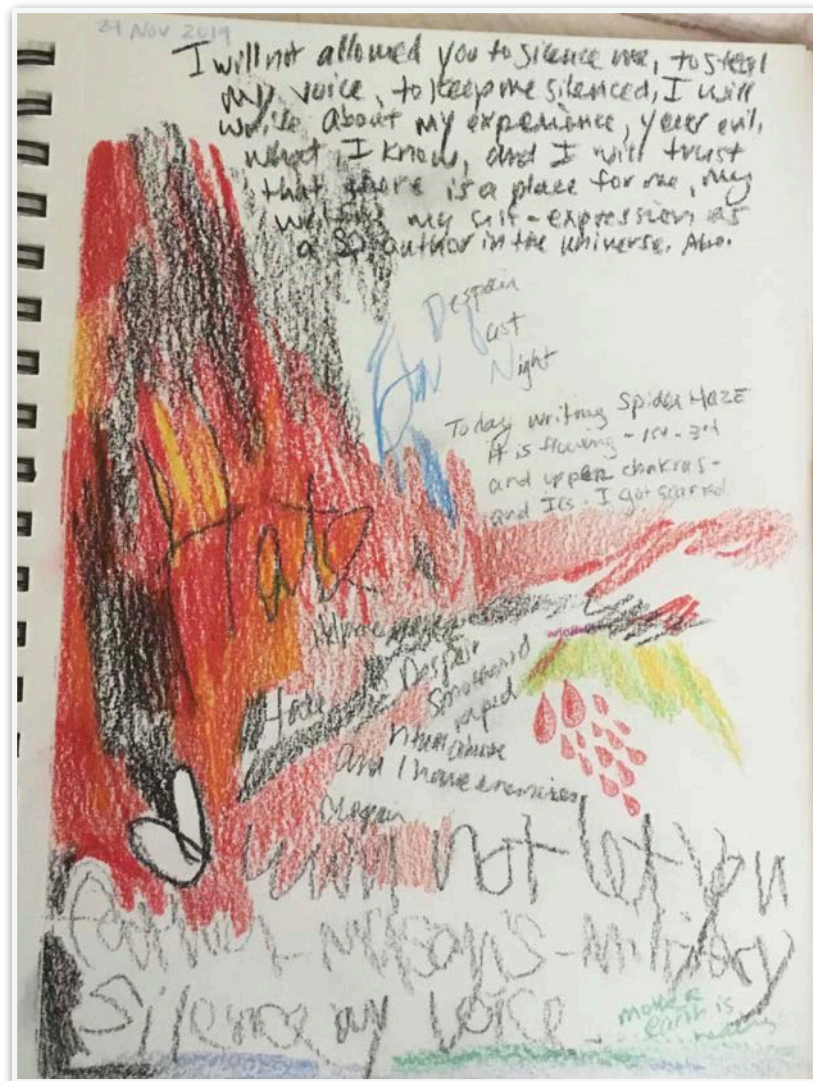 29 Nov 2019
I will not allowed you to silence me, to steal
my voice, to keep me silenced, I will
write about my experience, your evil,
what I know, and I will trust
that there is a place for me, my
writing my self-expression as
a author in the universe. Also.
Despair
Last
Night
Today writing Spider HAZE
It is flowing - 1st - 3rd
and upper chakras -
and I got scarred
Hate
Despair
Hate
smothered
raped
ritual abuse
and I have enemies
Despair
will not let you
Father - mason's - military
Silence my voice
mother
earth is